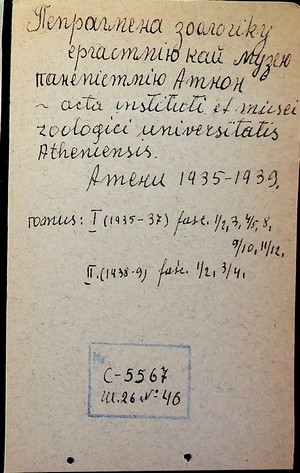 Пепрагмена зоологiку
ергастнiю кай музею
панепiстнiю Атнон
~ acta instituti et musei
zoologici universitatis
Atheniensis.
Атени 1935-1939.
томus: I (1935-37) fasc. 1/2, 3, 4/5, 8,
9/10, 11/12,
II. (1938-9) fasc. 1/2, 3/4,
С-5567
Ш.26 № 46